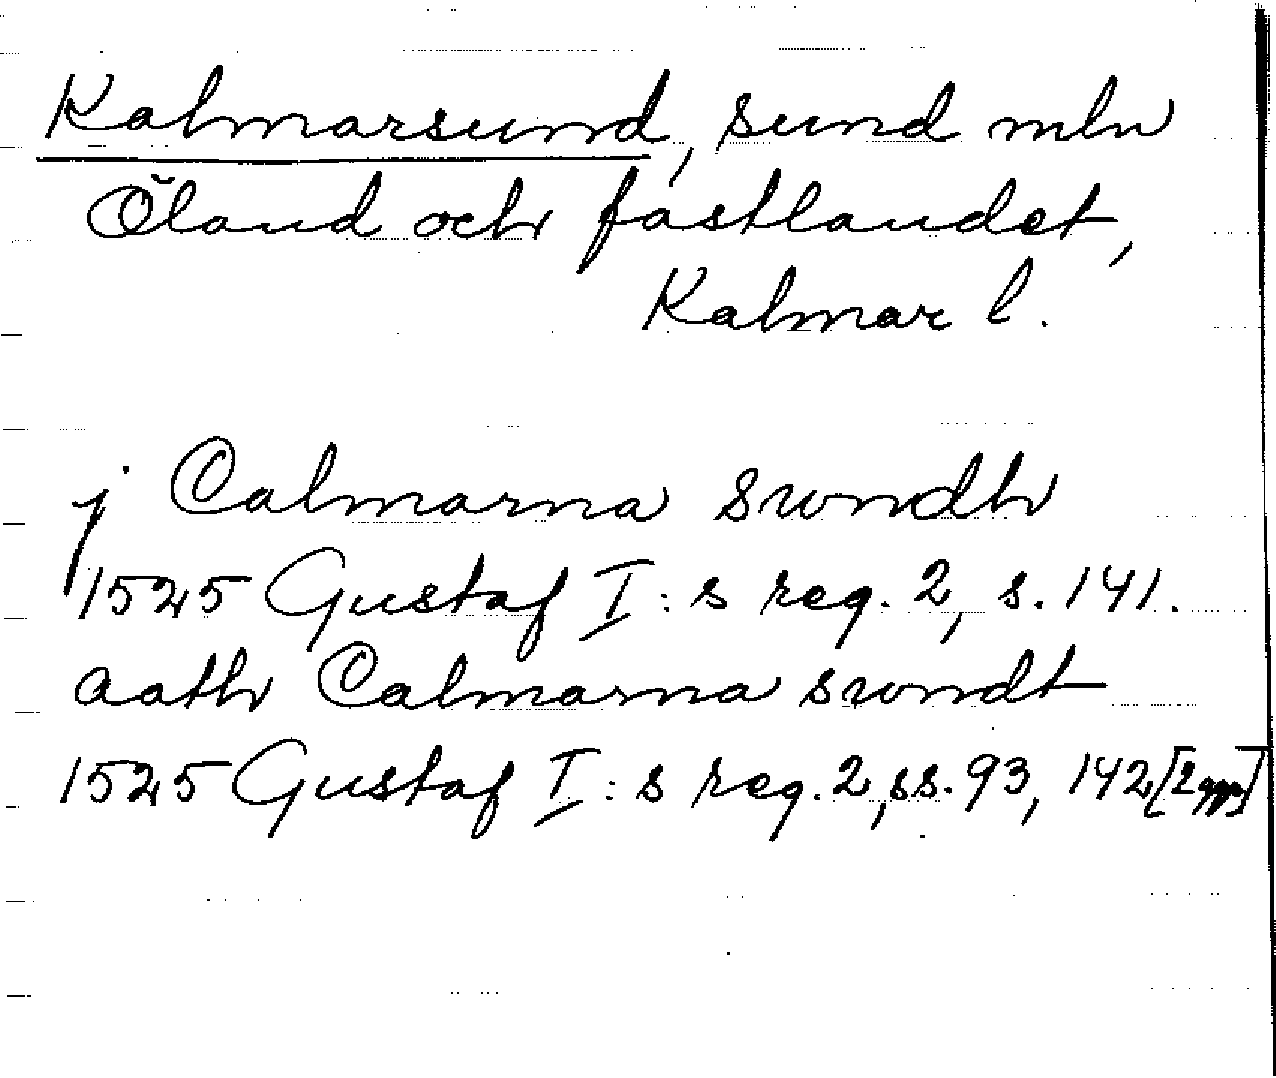 Kalmarsund, sund mln
Öland och fastlandet,
Kalmar l.
j Calmarna swndh
1525 Gustaf I:s reg. 2, s. 141.
aath Calmarna swndt
1525 Gustaf I:s reg. 2, ss. 93, 142 [2 ggr]